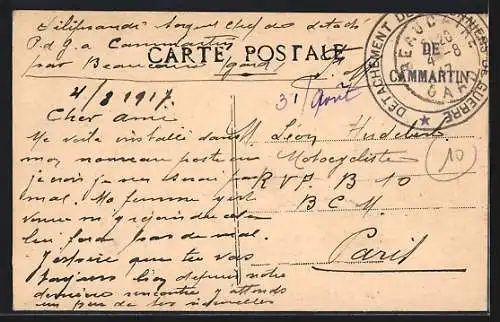 Filiprandi Sergent Chef de détach
P.d.g. a Cammartin
par Beaucaire (Gard)
CARTE POSTALE
DÉTACHEMENT DE PRISONNIERS DE GUERRE
DE
CAMMARTIN
BEAUCAIRE
GARD
4 - 8
17
4/8 1917
31 Août
Cher ami
Me voila installé dans
mon nouveau poste ou
je crois je ne serai pas
mal. Ma femme s'est
venue m'y rejoindre cela
lui fera pas de mal.
J'espère que tu vas
toujours bien depuis notre
dernière rencontre j'attends
un peu de tes nouvelles
Mr Léon
Motocycliste
R V F. B 10
B C M.
Paris
10